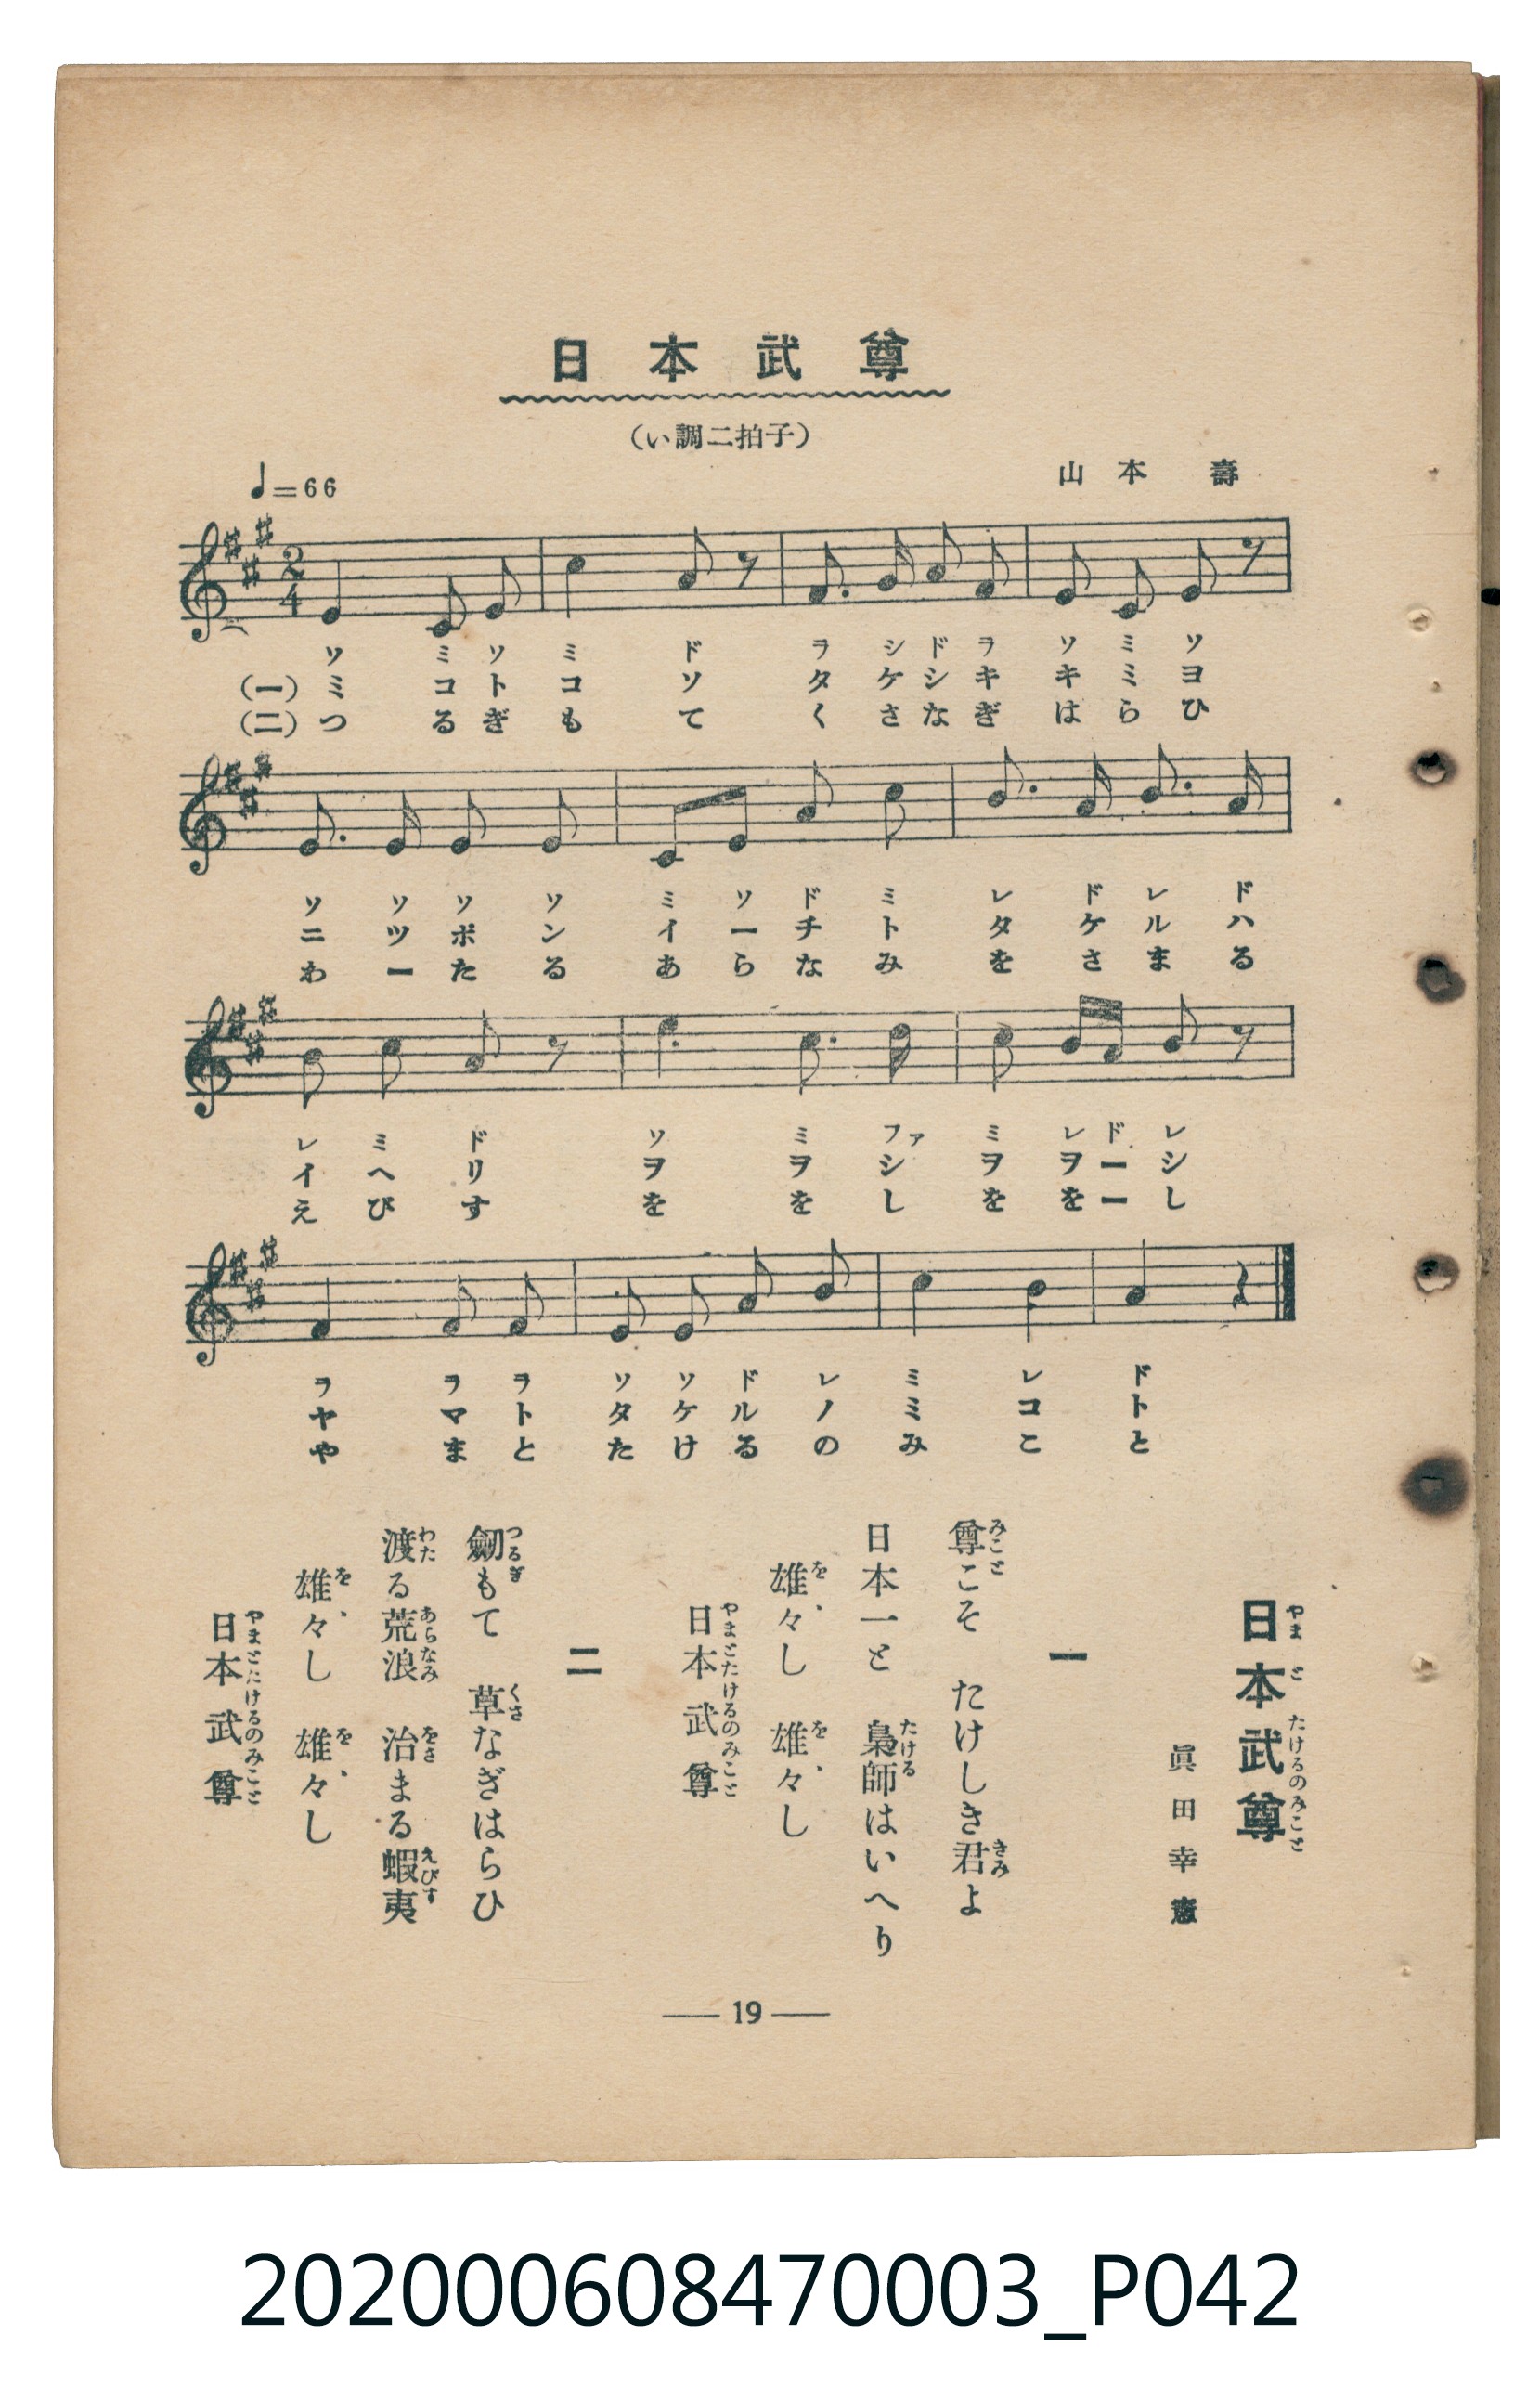 日本武尊
(い調二拍子)
♩=66
山本 壽
2
4
ソ ミ ソ ミ ド ラ シ ド ラ ソ ミ ソ
(一) ミ コ ト コ ソ タ ケ シ キ キ ミ ヨ
(二) つ る ぎ も て く さ な ぎ は ら ひ
ソ ソ ソ ソ ミ ソ ド ミ レ ド レ ド
ニ ツ ポ ン イ ー チ ト タ ケ ル ハ
わ ー た る あ ら な み を さ ま る
レ ミ ド ソ ミ ファ ミ レ ド レ
イ ヘ リ ヲ ヲ シ ヲ ヲ ー シ
え び す を を し を を ー し
ラ ラ ラ ソ ソ ド レ ミ レ ド
ヤ マ ト タ ケ ル ノ ミ コ ト
や ま と た け る の み こ と
日本武尊
やまとたけるのみこと
眞田幸憲
一
尊こそ たけしき君よ
みこと きみ
日本一と 梟師はいへり
たける
雄々し 雄々し
をゝ をゝ
日本武尊
やまとたけるのみこと
二
劒もて 草なぎはらひ
つるぎ くさ
渡る荒浪 治まる蝦夷
わた あらなみ をさ えびす
雄々し 雄々し
をゝ をゝ
日本武尊
やまとたけるのみこと
— 19 —
202000608470003_P042